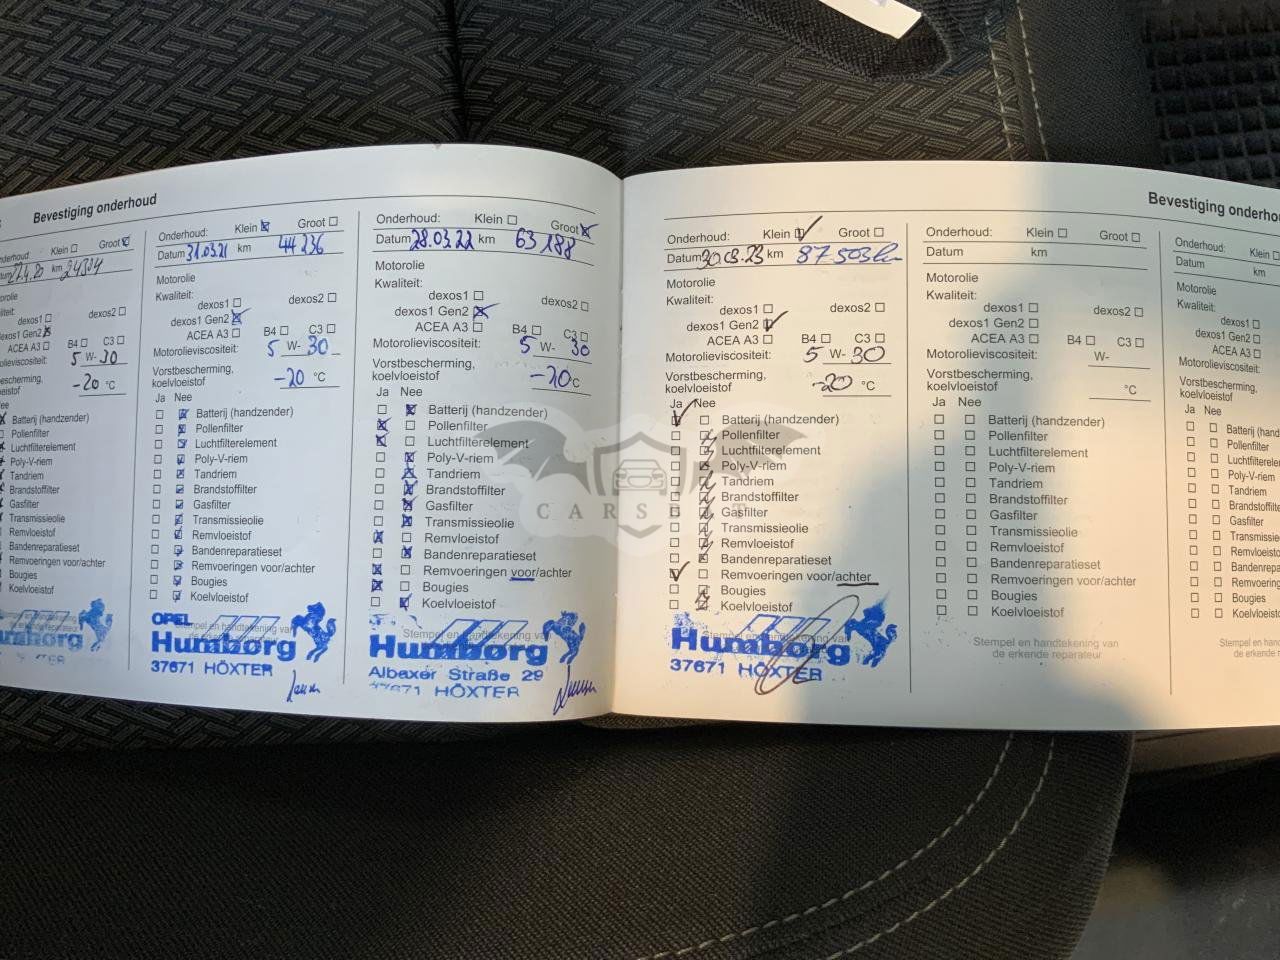 Bevestiging onderhoud
Klein Groot
24.20 km 24304
dexos1 dexos2
dexos1 Gen2
ACEA A3
Motorolieviscositeit:
5 W- 30
-20 °C
Nee
Batterij (handzender)
Pollenfilter
Luchtfilterelement
Poly-V-riem
Tandriem
Brandstoffilter
Gasfilter
Transmissieolie
Remvloeistof
Bandenreparatieset
Remvoeringen voor/achter
Bougies
Koelvloeistof
Humborg
Onderhoud: Klein Groot
Datum 31.03.21 km 44 236
Motorolie
Kwaliteit:
dexos1 dexos2
dexos1 Gen2
ACEA A3 B4 C3
Motorolieviscositeit: 5 W- 30
Vorstbescherming,
koelvloeistof -20 °C
Ja Nee
Batterij (handzender)
Pollenfilter
Luchtfilterelement
Poly-V-riem
Tandriem
Brandstoffilter
Gasfilter
Transmissieolie
Remvloeistof
Bandenreparatieset
Remvoeringen voor/achter
Bougies
Koelvloeistof
OPEL
Humborg
37671 HÖXTER
Onderhoud: Klein Groot
Datum 28.03.22 km 63 188
Motorolie
Kwaliteit:
dexos1 dexos2
dexos1 Gen2
ACEA A3 B4 C3
Motorolieviscositeit: 5 W- 30
Vorstbescherming,
koelvloeistof -20 °C
Ja Nee
Batterij (handzender)
Pollenfilter
Luchtfilterelement
Poly-V-riem
Tandriem
Brandstoffilter
Gasfilter
Transmissieolie
Remvloeistof
Bandenreparatieset
Remvoeringen voor/achter
Bougies
Koelvloeistof
Stempel en handtekening van
Humborg
Albaxer Straße 29
37671 HÖXTER
Onderhoud: Klein Groot
Datum 30.03.23 km 87 503 km
Motorolie
Kwaliteit:
dexos1 dexos2
dexos1 Gen2
ACEA A3 B4 C3
Motorolieviscositeit: 5 W- 30
Vorstbescherming,
koelvloeistof -20 °C
Ja Nee
Batterij (handzender)
Pollenfilter
Luchtfilterelement
Poly-V-riem
Tandriem
Brandstoffilter
Gasfilter
Transmissieolie
Remvloeistof
Bandenreparatieset
Remvoeringen voor/achter
Bougies
Koelvloeistof
Humborg
37671 HÖXTER
Onderhoud: Klein Groot
Datum km
Motorolie
Kwaliteit:
dexos1 dexos2
dexos1 Gen2
ACEA A3 B4 C3
Motorolieviscositeit: W-
Vorstbescherming,
koelvloeistof °C
Ja Nee
Batterij (handzender)
Pollenfilter
Luchtfilterelement
Poly-V-riem
Tandriem
Brandstoffilter
Gasfilter
Transmissieolie
Remvloeistof
Bandenreparatieset
Remvoeringen voor/achter
Bougies
Koelvloeistof
Stempel en handtekening van
de erkende reparateur
Bevestiging onderho
Onderhoud: Klein
Datum km
Motorolie
Kwaliteit:
dexos1
dexos1 Gen2
ACEA A3
Motorolieviscositeit:
Vorstbescherming,
koelvloeistof
Ja Nee
Batterij (hand
Pollenfilter
Luchtfilterele
Poly-V-riem
Tandriem
Brandstoffilt
Gasfilter
Transmissie
Remvloeisto
Bandenrepa
Remvoering
Bougies
Koelvloeisto
Stempel en hand
de erkende r